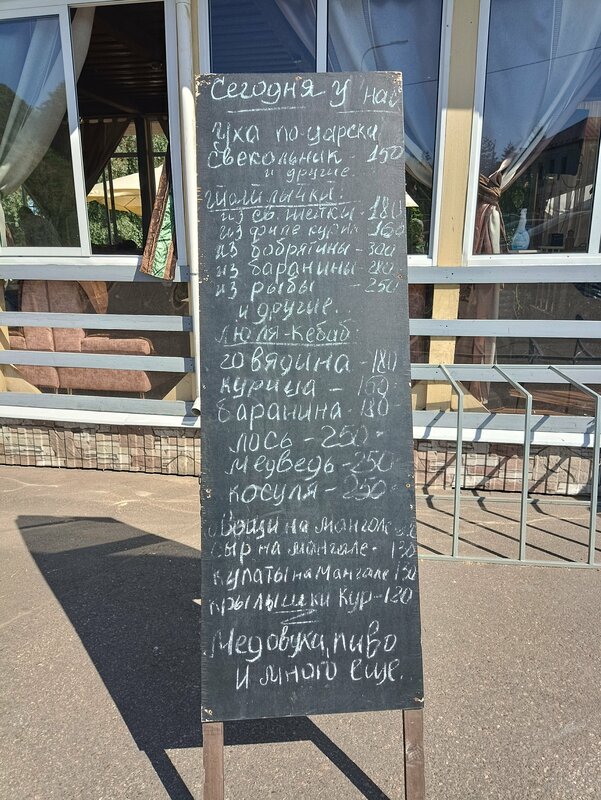 Сегодня у нас
Уха по-царска
Свекольник - 150
и другие.
Шашлычки:
из св. шейки - 180
из филе курин 160
из говядины - 300
из баранины - 280
из рыбы - 250
и другие.
Люля-Кебаб:
говядина - 180
курица - 160
баранина - 180
лось - 250
медведь - 250
косуля - 250
Овощи на мангале
Сыр на мангале - 130
Купаты на Мангале 130
Крылышки кур - 120
Медовуха, пиво
и много еще.